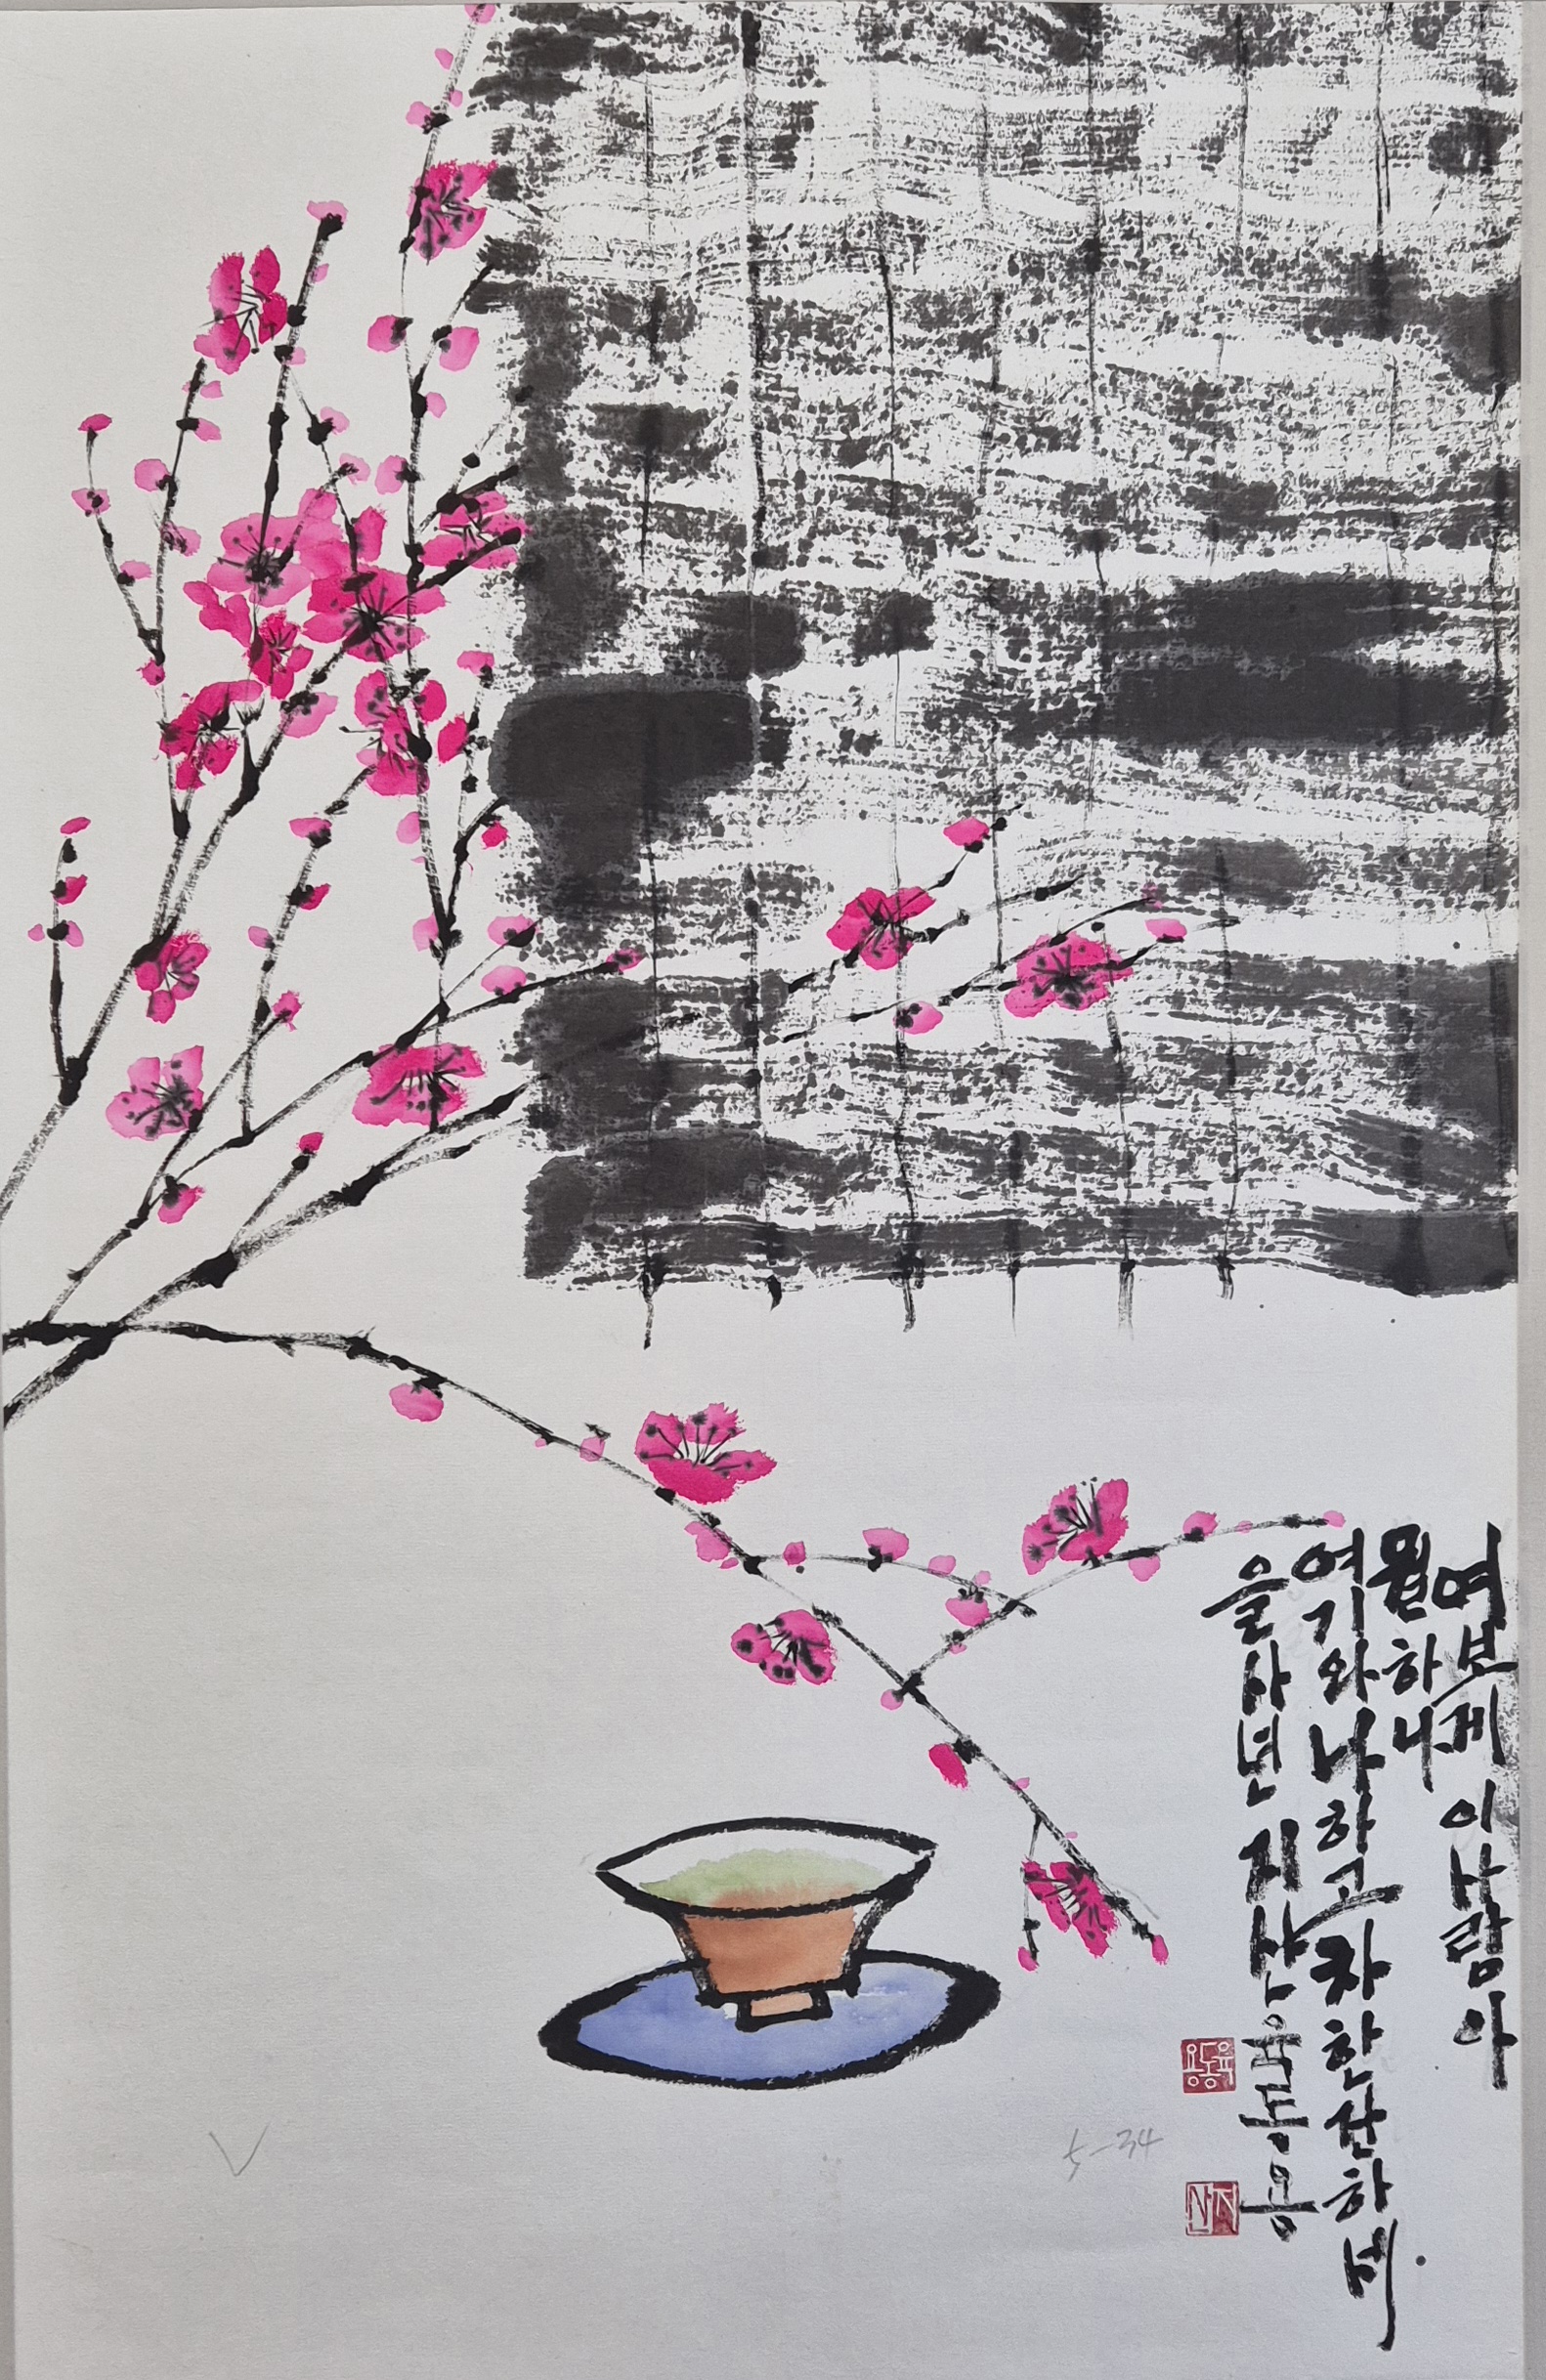 여보게 이사람아
뭘하나
여기와 나하고 차한잔하세.
을사년 지산 육동용
육동용
지산
5-34